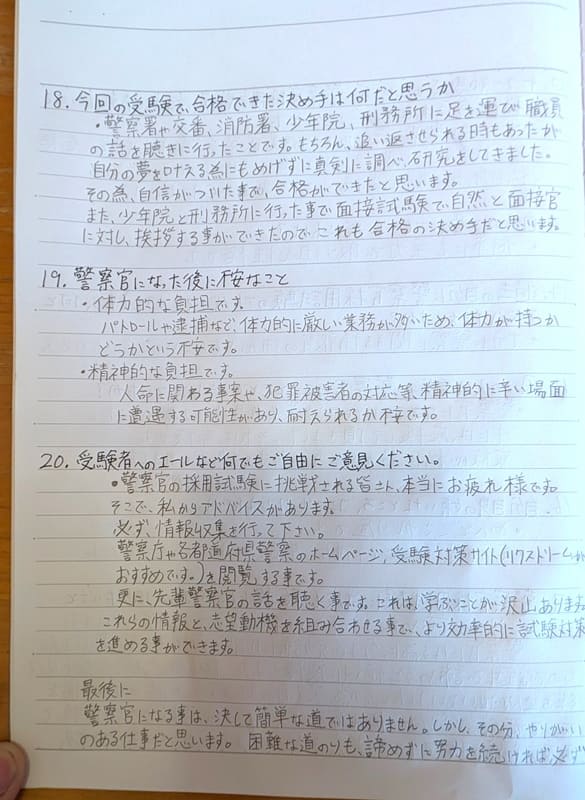 18. 今回の受験で、合格できた決め手は何だと思うか
・警察署や交番、消防署、少年院、刑務所に足を運び職員
の話を聴きに行ったことです。もちろん、追い返させられる時もあったが
自分の夢を叶える為にもめげずに真剣に調べ、研究をしてきました。
その為、自信がついた事で、合格ができたと思います。
また、少年院と刑務所に行った事で面接試験で、自然と面接官
に対し、挨拶する事ができたので、これも合格の決め手だと思います。
19. 警察官になった後に不安なこと
・体力的な負担です。
パトロールや逮捕など、体力的に厳しい業務が多いため、体力が持つか
どうかという不安です。
・精神的な負担です。
人命に関わる事案や、犯罪被害者の対応等、精神的に辛い場面
に遭遇する可能性があり、耐えられるか不安です。
20. 受験者へのエールなど何でもご自由にご意見ください。
・警察官の採用試験に挑戦される皆さん、本当にお疲れ様です。
そこで、私からアドバイスがあります。
必ず、情報収集を行って下さい。
警察庁や各都道府県警察のホームページ、受験対策サイト(リクストリームが
おすすめです。)を閲覧する事です。
更に、先輩警察官の話を聴く事です。これは、学ぶことが沢山あります
これらの情報と、志望動機を組み合わせる事で、より効率的に試験対策
を進める事ができます。
最後に
警察官になる事は、決して簡単な道ではありません。しかし、その分、やりがい
のある仕事だと思います。困難な道のりも、諦めずに努力を続ければ必ず